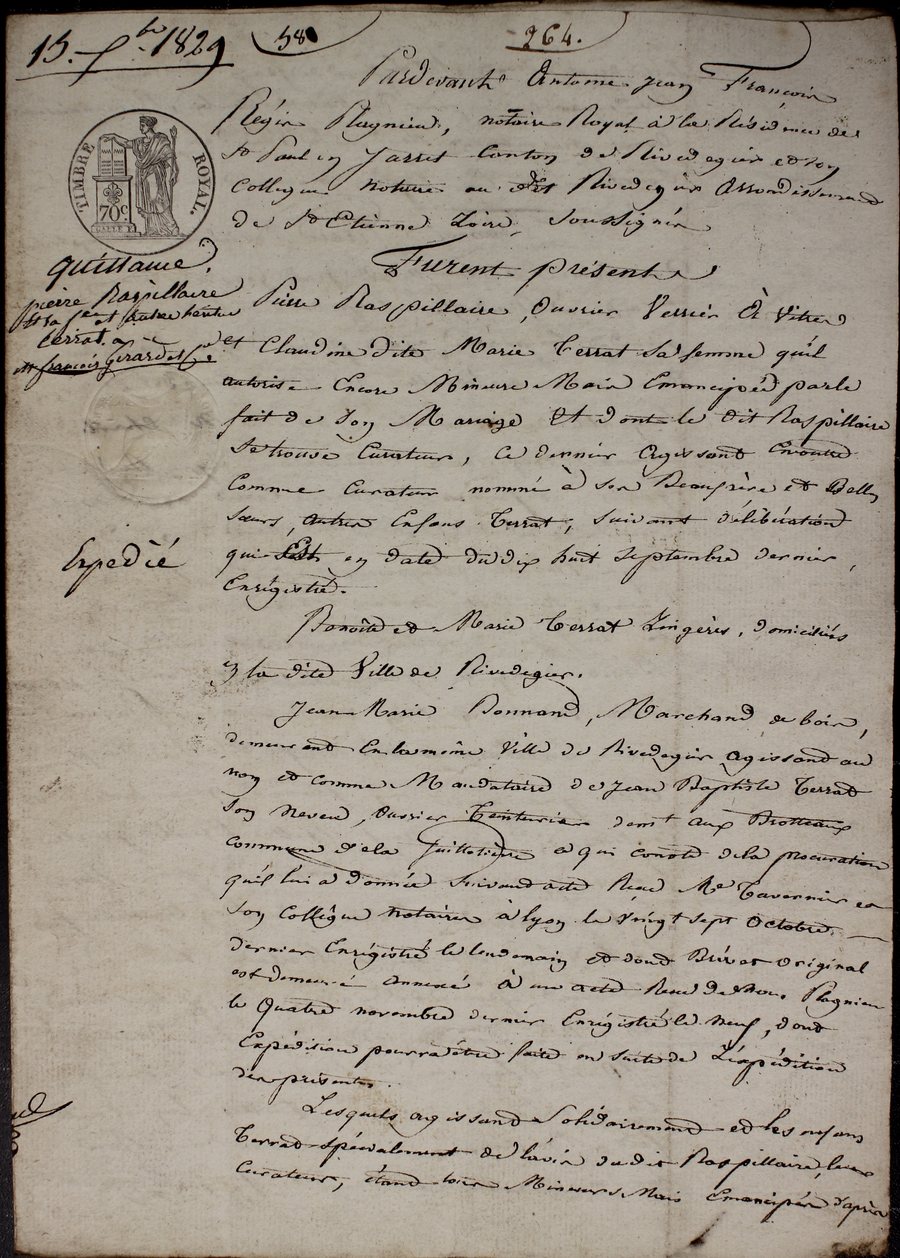 15. 1829
58
264.
Pardevant Antoine Jean François
Régis Plagnieu, notaire Royal à la Résidence de
St Paul en Jarret Canton de Rivedegier et son
Collegue notaire au dt Rivedegier Arrondissement
de St Etienne Loire, Soussignés
TIMBRE ROYAL.
70c
Quittance.
pierre Raspillaire
et sa fe et autre
Terrat a
mr françois Girard et Ce
Expedié
Furent présents
Pierre Raspillaire, Ouvrier Verrier à Vitres
et Claudine dite Marie Terrat sa femme qu'il
autorise Encore Mineure Mais Emancipée par le
fait de son Mariage Et dont le dit Raspillaire
se trouve Curateur, Ce dernier agissant Enoutre
Comme Curateur nommé à ses Beaufrère et Belles
sœurs, autres Enfans Terrat, suivant délibération
qui Est en date du dix huit septembre dernier,
Enrégistré.
Benoite et Marie Terrat Lingères, domiciliés
à la dite Ville de Rivedegier.
Jean Marie Bonnand, Marchand de bois,
demeurant En la même Ville de Rivedegier agissand au
nom et comme Mandataire de Jean Baptiste Terrat
son neveu, ouvrier Teinturier demt aux Brotteaux
commune de la Guillotière a qui conste de la procuration
qu'il lui a donnée suivand acte Reçu Me Tavernier et
son Collègue notaires à Lyon le Vingt sept Octobre
dernier Enrégistré le lendemain et dond Brévet Original
est demeuré annexé à un acte Reçu de nous Plagnieu
le Quatre novembre dernier Enrégistré le neuf, dont
Expédition pourra être faite en suite de L'éxpédition
des présentes.
Lesquels agissand Solidairement et les enfans
Terrat spécialement de l'avis du dit Raspillaire, leur
Curateur, étand tous Mineurs Mais Emancipés d'après